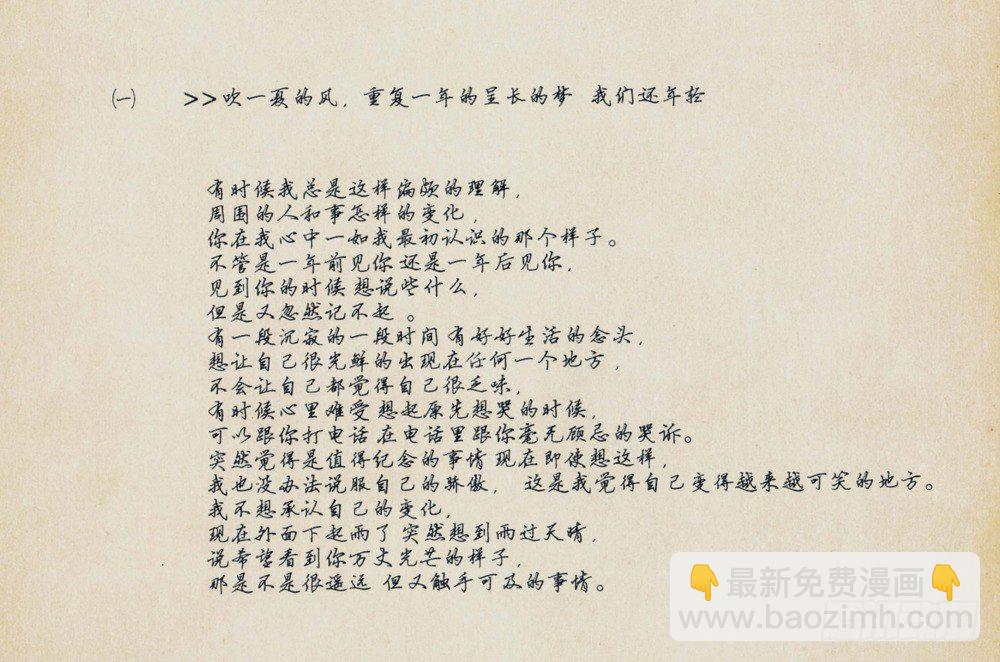 ㈠ >>吹一夏的风，重复一年的呈长的梦 我们还年轻
有时候我总是这样偏颇的理解，
周围的人和事怎样的变化，
你在我心中一如我最初认识的那个样子。
不管是一年前见你 还是一年后见你，
见到你的时候 想说些什么，
但是又忽然记不起 。
有一段沉寂的一段时间 有好好生活的念头，
想让自己很光鲜的出现在任何一个地方，
不会让自己都觉得自己很乏味，
有时候心里难受 想起原先想哭的时候，
可以跟你打电话 在电话里跟你毫无顾忌的哭诉。
突然觉得是值得纪念的事情 现在即使想这样，
我也没办法说服自己的骄傲， 这是我觉得自己变得越来越可笑的地方。
我不想承认自己的变化，
现在外面下起雨了 突然想到雨过天晴，
说希望看到你万丈光芒的样子，
那是不是很遥远 但又触手可及的事情。
👇最新免费漫画👇
www.baozimh.com